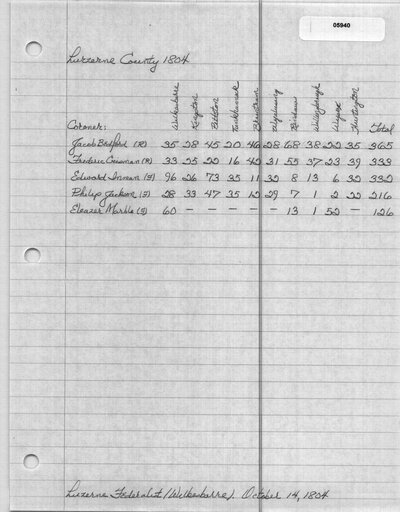 05940
Luzerne County 1804
Wilkesbarre Kingston Pittston Tunkhannock Braintrim Wyalusing Willingborough Huntington
Coroner: Total
Jacob Bedford (R) 35 28 45 20 46 28 68 38 22 35 365
Frederic (R) 33 25 22 16 42 31 55 37 23 39 333
Edward Inman (F) 96 26 73 35 11 32 8 13 6 32 332
Philip Jackson (F) 28 33 47 35 12 29 7 1 2 22 216
Eleazer Marble (F) 60 — — — — — 13 1 52 — 126
Luzerne Federalist (Wilkesbarre). October 14, 1804